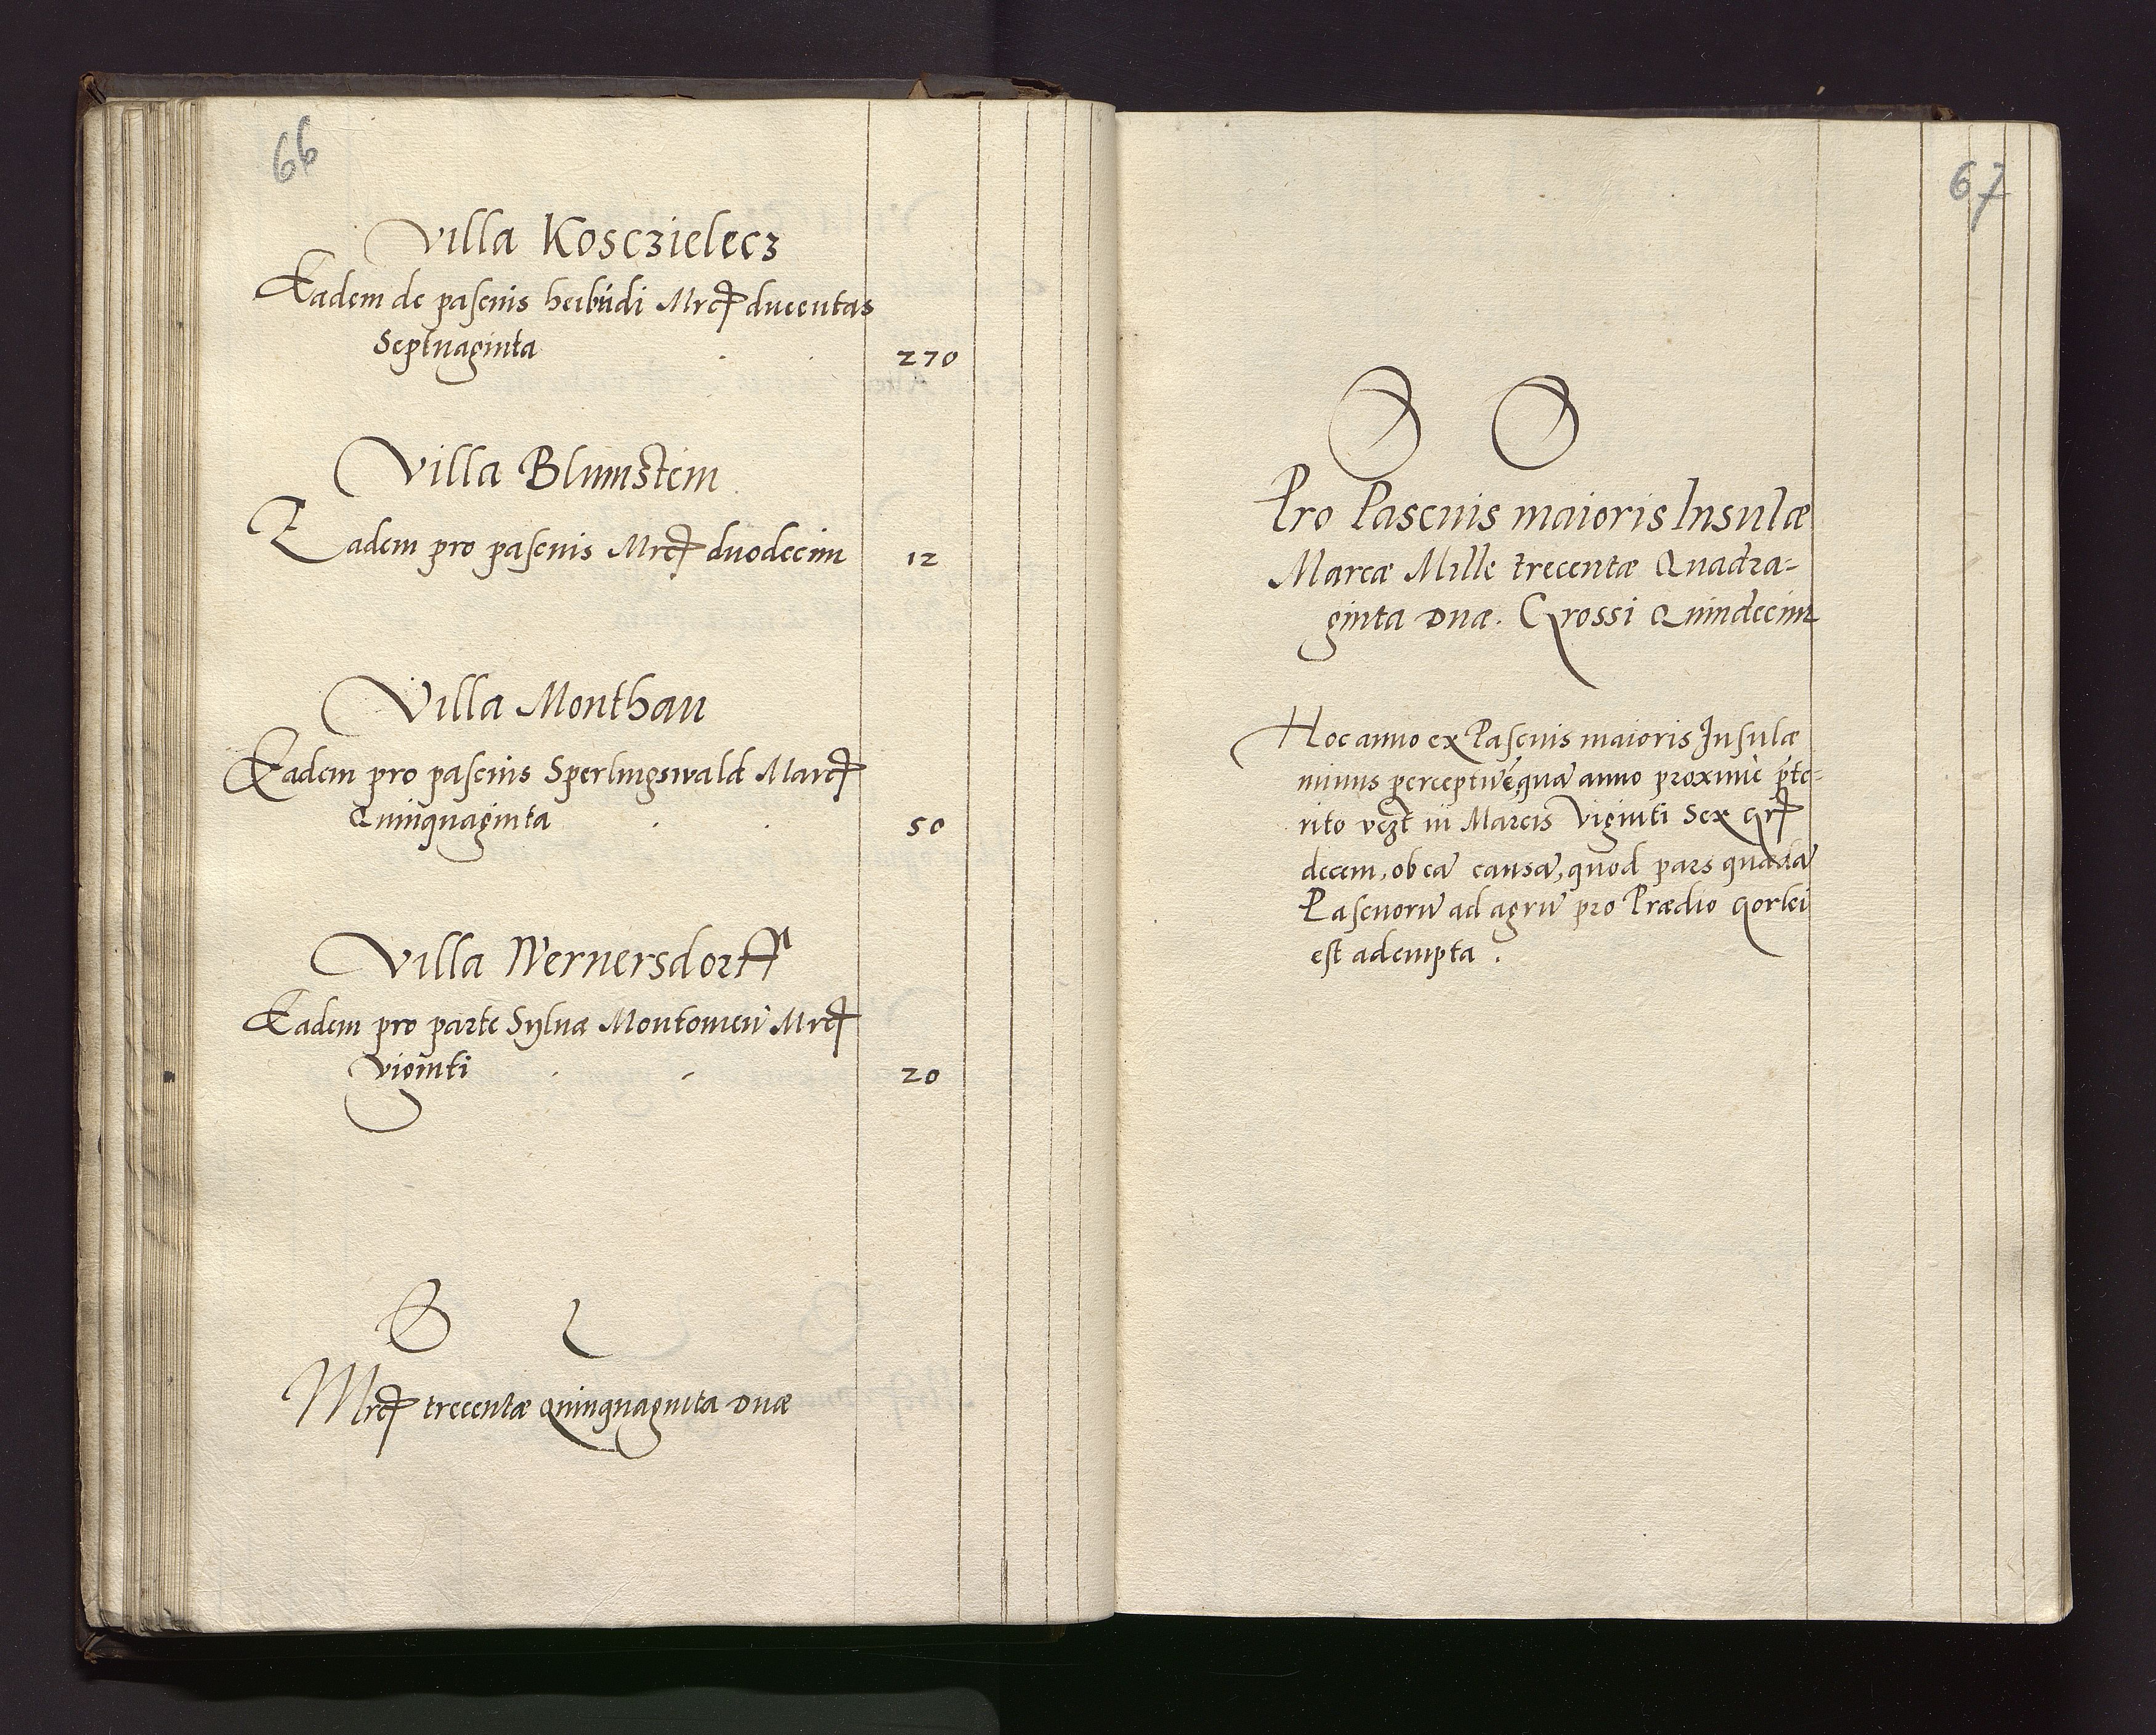 66
Villa Kosczielecz
Eadem de pascuis heibudi Mrcf ducentas
Septuaginta . . 270
Villa Blumstein
Eadem pro pascuis Mrcf duodecim 12
Villa Monthau
Eadem pro pascuis Sperlingswald Marcf
Quinquaginta . . 50
Villa Wernersdorff
Eadem pro parte Sylvæ Montowen Mrcf
viginti . - 20
S L
Mrcf trecentæ Quinquaginta Duæ
67
Pro Pascuis maioris Insulæ
Marcæ Mille trecentæ Quadra-
ginta Duæ. Grossi Quindecim
Hoc anno ex Pascuis maioris Insulæ
minus perceptũ ẽ, quã anno proxime p̃te-
rito in Marcis Viginti Sex grf
decem, ob eã causã, quod pars quædã
Pascuorũ ad agrũ pro Prædio Gorlei
est adempta .